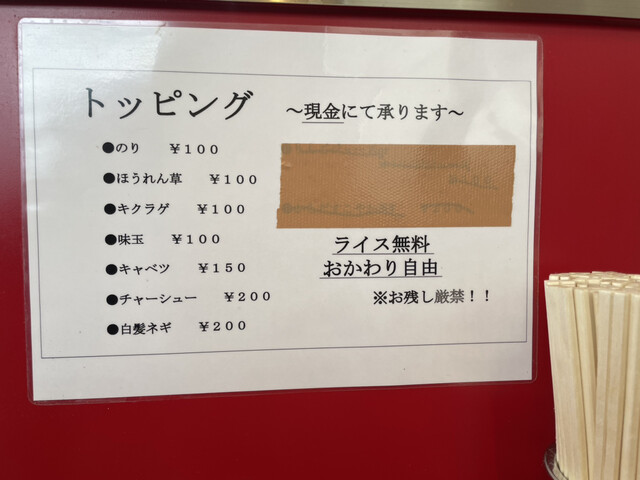 トッピング ～現金にて承ります～
●のり ￥１００
●ほうれん草 ￥１００
●キクラゲ ￥１００
●味玉 ￥１００
●キャベツ ￥１５０
●チャーシュー ￥２００
●白髪ネギ ￥２００
ライス無料
おかわり自由
※お残し厳禁！！